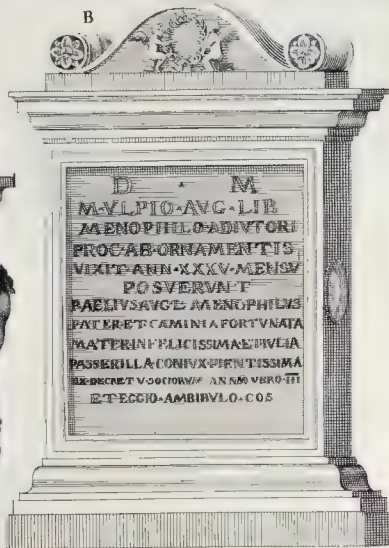 B
D · M
M·VLPIO·AVG·LIB
MENOPHILO·ADIVTORI
PROC·AB·ORNAMENTIS
VIXIT·ANN·XXXV·MENS V
POSVERVNT
PAELIVS AVG L MENOPHILVS
PATER·ET·CAMINIA FORTVNATA
MATER INFELICISSIMA·ET IVLIA
PASSERILLA·CONIVX·PIENTISSIMA
EX·DECRETV·SOCIORVM ANNIO VERO·III
ET EGGIO·AMBIBVLO·COS